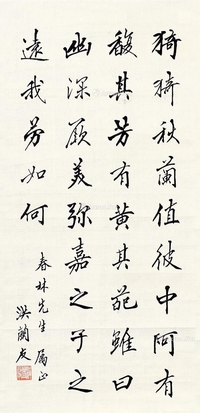 猗猗秋蘭值彼中阿有
馥其芳有黃其葩雖曰
幽深厥美弥嘉之子之
遠我勞如何
春林先生属正
洪蘭友